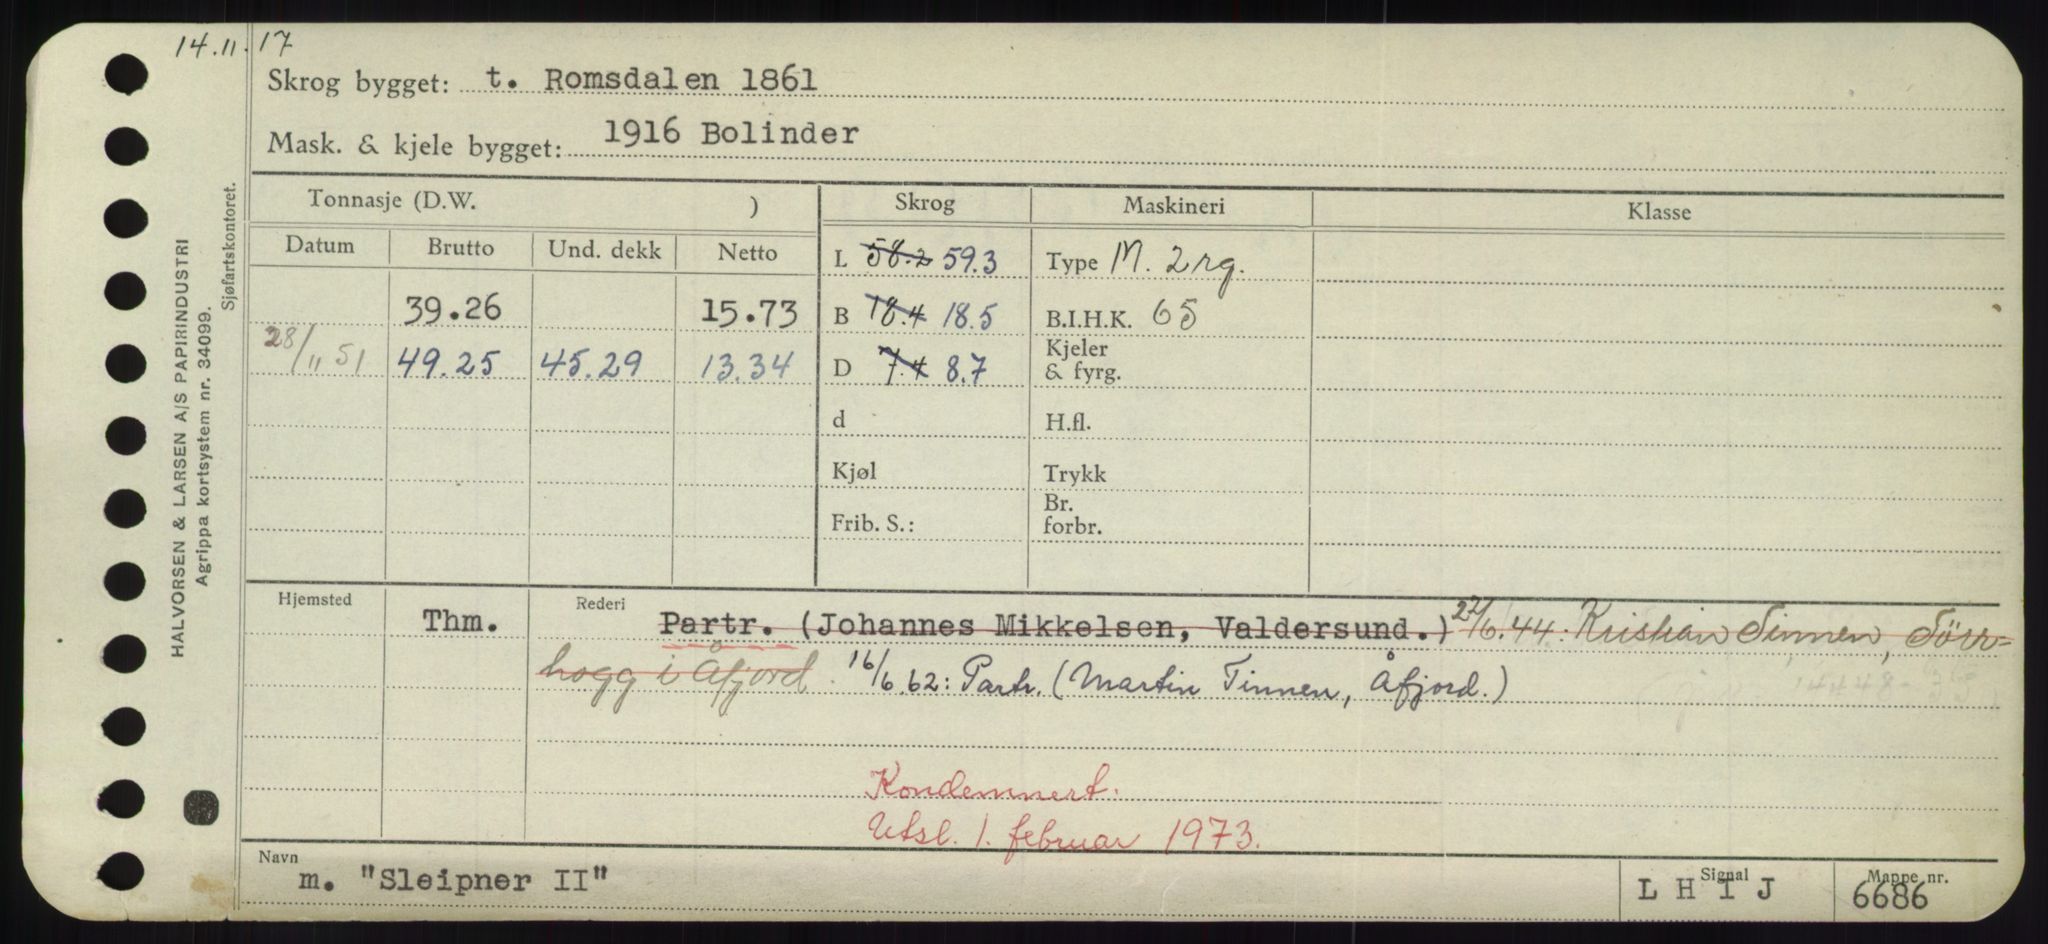 14.11.17
Skrog bygget: t. Romsdalen 1861
Mask. & kjele bygget: 1916 Bolinder
Tonnasje (D.W. ) Skrog Maskineri Klasse
Datum Brutto Und. dekk Netto L 58.2 59.3 Type M. 2 rg.
39.26 15.73 B 18.4 18.5 B.I.H.K. 65
28/11 51 49.25 45.29 13.34 D 7.4 8.7 Kjeler
& fyrg.
d H.fl.
Kjøl Trykk
Br.
Frib. S.: forbr.
Hjemsted Thm. Rederi Partr. (Johannes Mikkelsen, Valdersund.) 22/6.44: Kristian Tinnen, Sörr=
hogg i Åfjord. 16/6.62: Partr. (Martin Tinnen, Åfjord.)
Kondemnert.
Utsl. 1. februar 1973.
Navn Signal Mappe nr.
m. "Sleipner II" L H I J 6686
HALVORSEN & LARSEN A/S PAPIRINDUSTRI
Agrippa kortsystem nr. 34099.
Sjøfartskontoret.